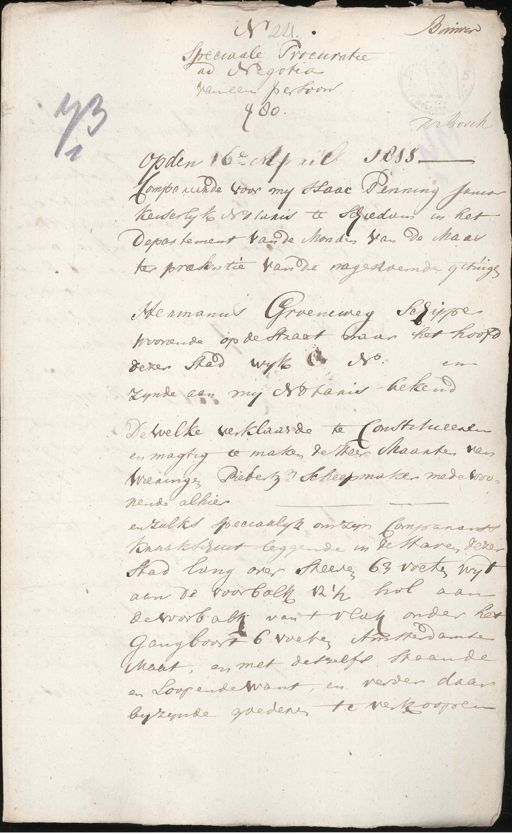 No 221.
Binnen
Speciaale Procuratie
ad Negotia
van een persoon
f 80.
73
1
Op den 16e April 1811
Compareerde voor my Isaac Penning Junior
Keiserlyk Notaris te Schiedam in het
Departement van de Monden van de Maas
ter presentie van de nagenoemde getuigen
Hermanus Groeneweg Schipper
woonende op de Straat naar het hoofd
dezer Stad wyk C No. en
zynde aan my Notaris bekend
Dewelke verklaarde te Constitueeren
en magtig te maken de Heer Maarten van
Scheepmaker mede woo-
nende alhier
en zulks speciaalyk om zyn Comparants
leggende in de Haven dezer
Stad lang over Steven 63 voeten wyt
aan de voorbalk 12 1/2 hol aan
de voorbalk van 't vlak onder het
Gangboort 6 voeten Amsterdamse
Maat, en met deszelfs staande
en Loopende want, en verder daar
byzynde goederen te verkoopen